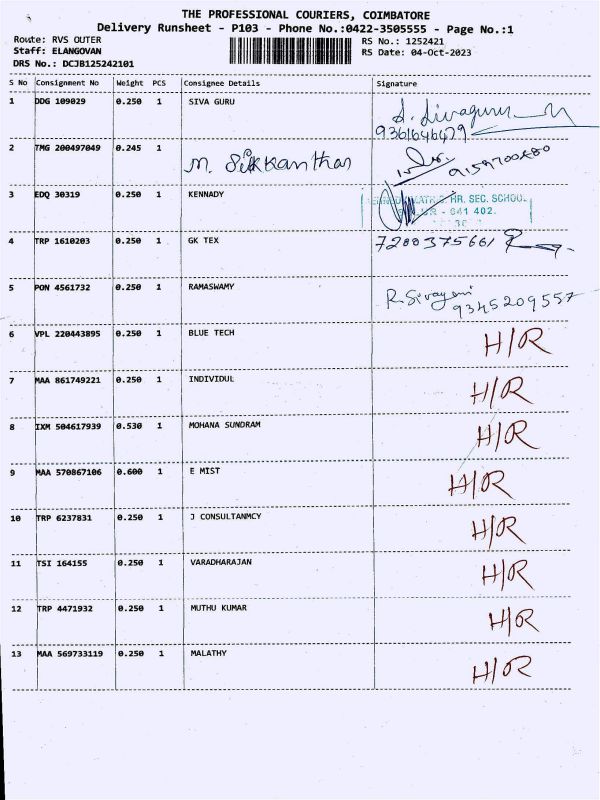 THE PROFESSIONAL COURIERS, COIMBATORE
Delivery Runsheet - P103 - Phone No.:0422-3505555 - Page No.:1
Route: RVS OUTER RS No.: 1252421
Staff: ELANGOVAN RS Date: 04-Oct-2023
DRS No.: DCJB125242101
S No Consignment No Weight PCS Consignee Details Signature
1 DDG 109029 0.250 1 SIVA GURU S. Sivaguru
9361646479
2 TMG 200497049 0.245 1 M. Srikkanthan
3 EDQ 30319 0.250 1 KENNADY HR. SEC. SCHOOL
- 641 402.
4 TRP 1610203 0.250 1 GK TEX 7200375661
5 PON 4561732 0.250 1 RAMASWAMY R. Sivayani
9345209557
6 VPL 220443895 0.250 1 BLUE TECH H/R
7 MAA 861749221 0.250 1 INDIVIDUL H/R
8 IXM 504617939 0.530 1 MOHANA SUNDRAM H/R
9 MAA 570867106 0.600 1 E MIST H/R
10 TRP 6237831 0.250 1 J CONSULTANMCY H/R
11 TSI 164155 0.250 1 VARADHARAJAN H/R
12 TRP 4471932 0.250 1 MUTHU KUMAR H/R
13 MAA 569733119 0.250 1 MALATHY H/R